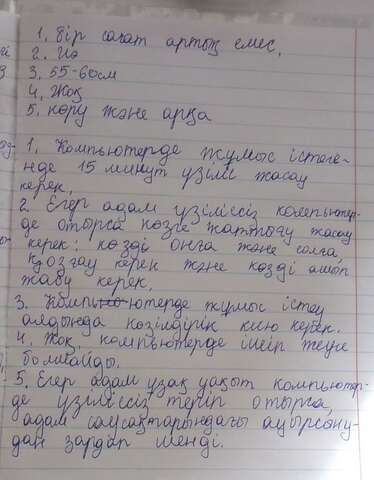 1. Бір сағат артық емес.
2. Иә
3. 55-60см
4. Жоқ
5. көру және арқа
1. Компьютерде жұмыс істеге-
нде 15 минут үзіліс жасау
керек.
2. Егер адам үзіліссіз компьютер-
де отырса көзге жаттығу жасау
керек: көзді оңға және солға,
қозғау керек және көзді ашып
жабу керек.
3. Компьютерде жұмыс істеу
алдында көзілдірік кию керек.
4. Жоқ, компьютерде ішіп жеуге
болмайды.
5. Егер адам ұзақ уақыт компьютер-
де үзіліссіз теріп отырса,
адам саусақтарындағы ауырсыну-
дан зардап шенді.